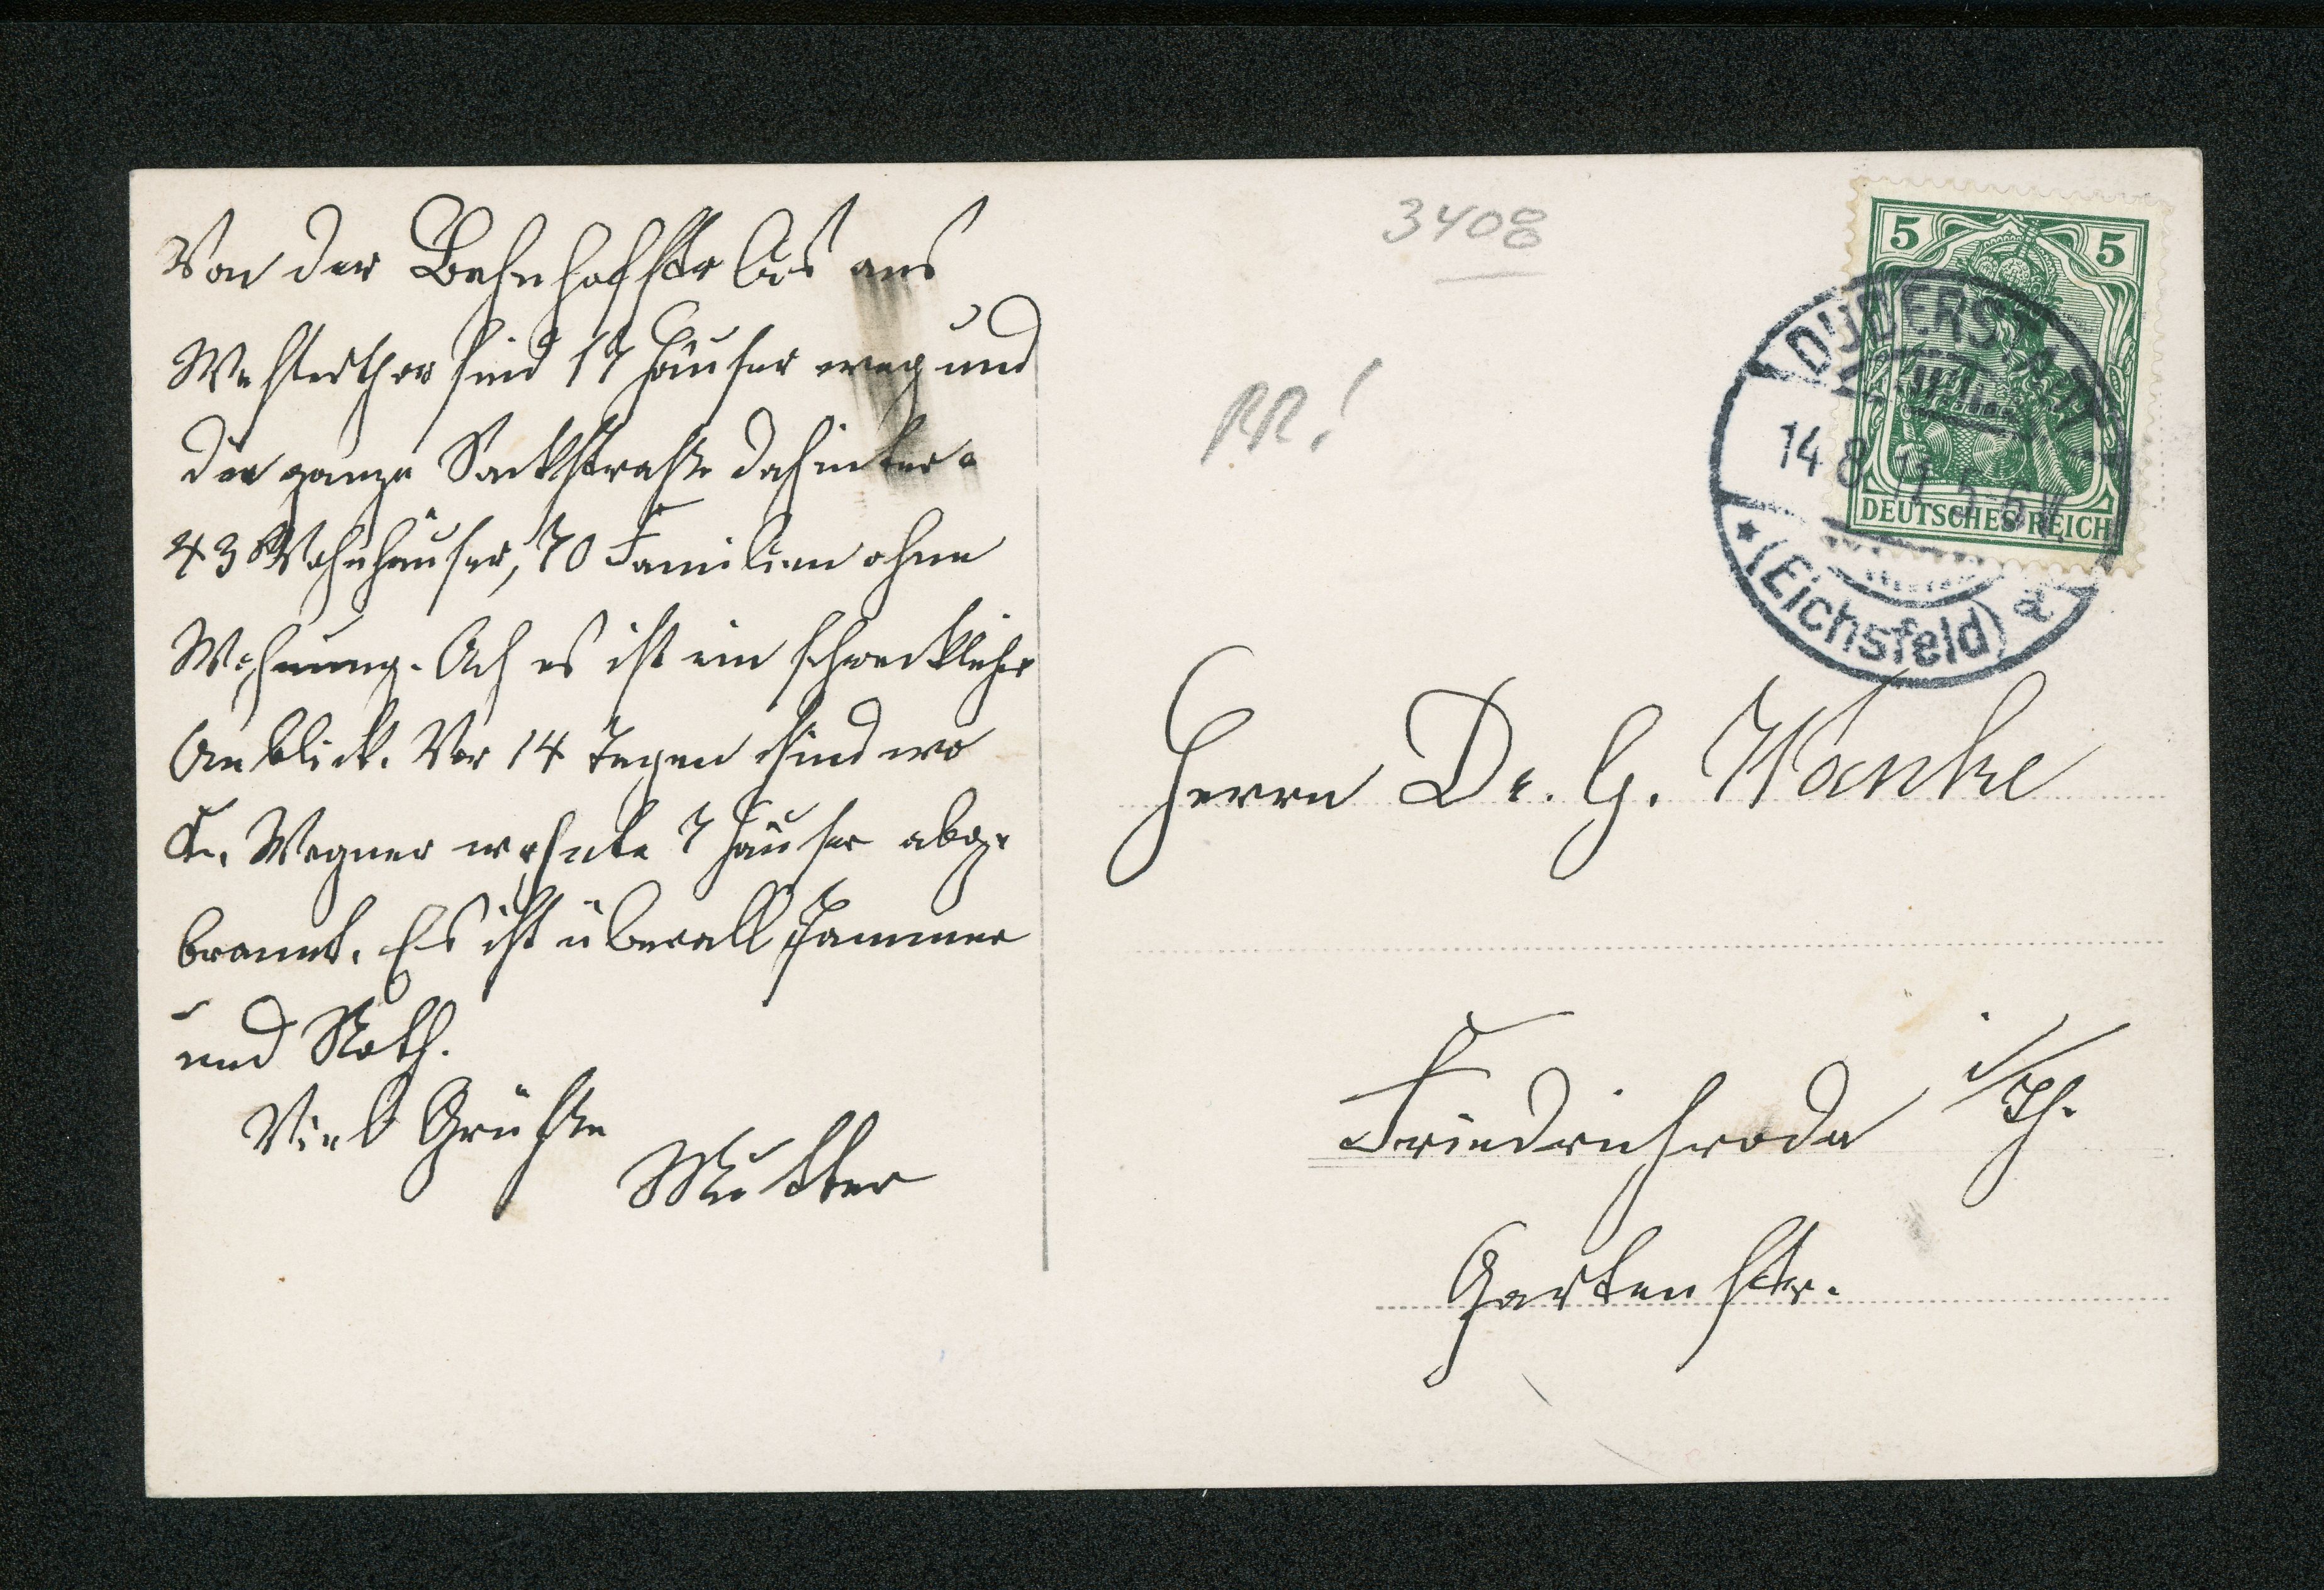 Von der Bahnhofstr bis ans
Westerthor sind 17 Häuser weg und
die ganze Sackstraße dahinter.
43 Wohnhäuser, 70 Familien ohne
Wohnung. Ach es ist ein schrecklicher
Anblick. Vor 14 Tagen sind wo
Fr. Wegner wohnte 7 Häuser abge
brannt. Es ist überall Jammer
und Noth.
Viel Grüße
Mutter
3408
RR!
5 5
DEUTSCHES REICH
DUDERSTADT
14 8 11 5-6 N.
* (Eichsfeld) a
Herrn Dr. G. Wanke
Friedrichroda i/Th.
Gartenstr.